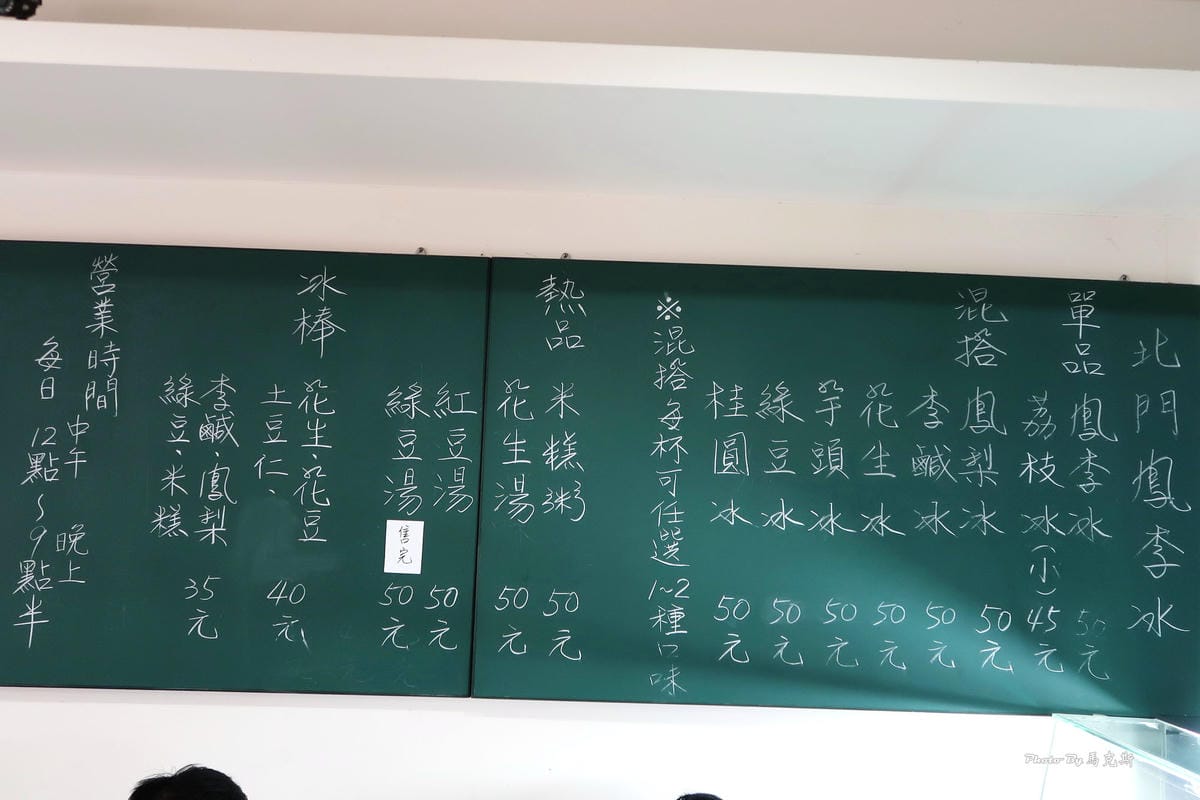 北門鳳李冰
單品 鳳李冰 50元
荔枝冰(小) 45元
混搭 鳳梨冰 50元
李鹹冰 50元
花生冰 50元
芋頭冰 50元
綠豆冰 50元
桂圓冰 50元
※混搭每杯可任選1~2種口味
熱品 米糕粥 50元
花生湯 50元
紅豆湯 50元
綠豆湯 售完 50元
冰棒 花生、花豆
土豆仁、 40元
李鹹、鳳梨
綠豆、米糕 35元
營業時間
中午 晚上
每日 12點~9點半
Photo By 馬克斯